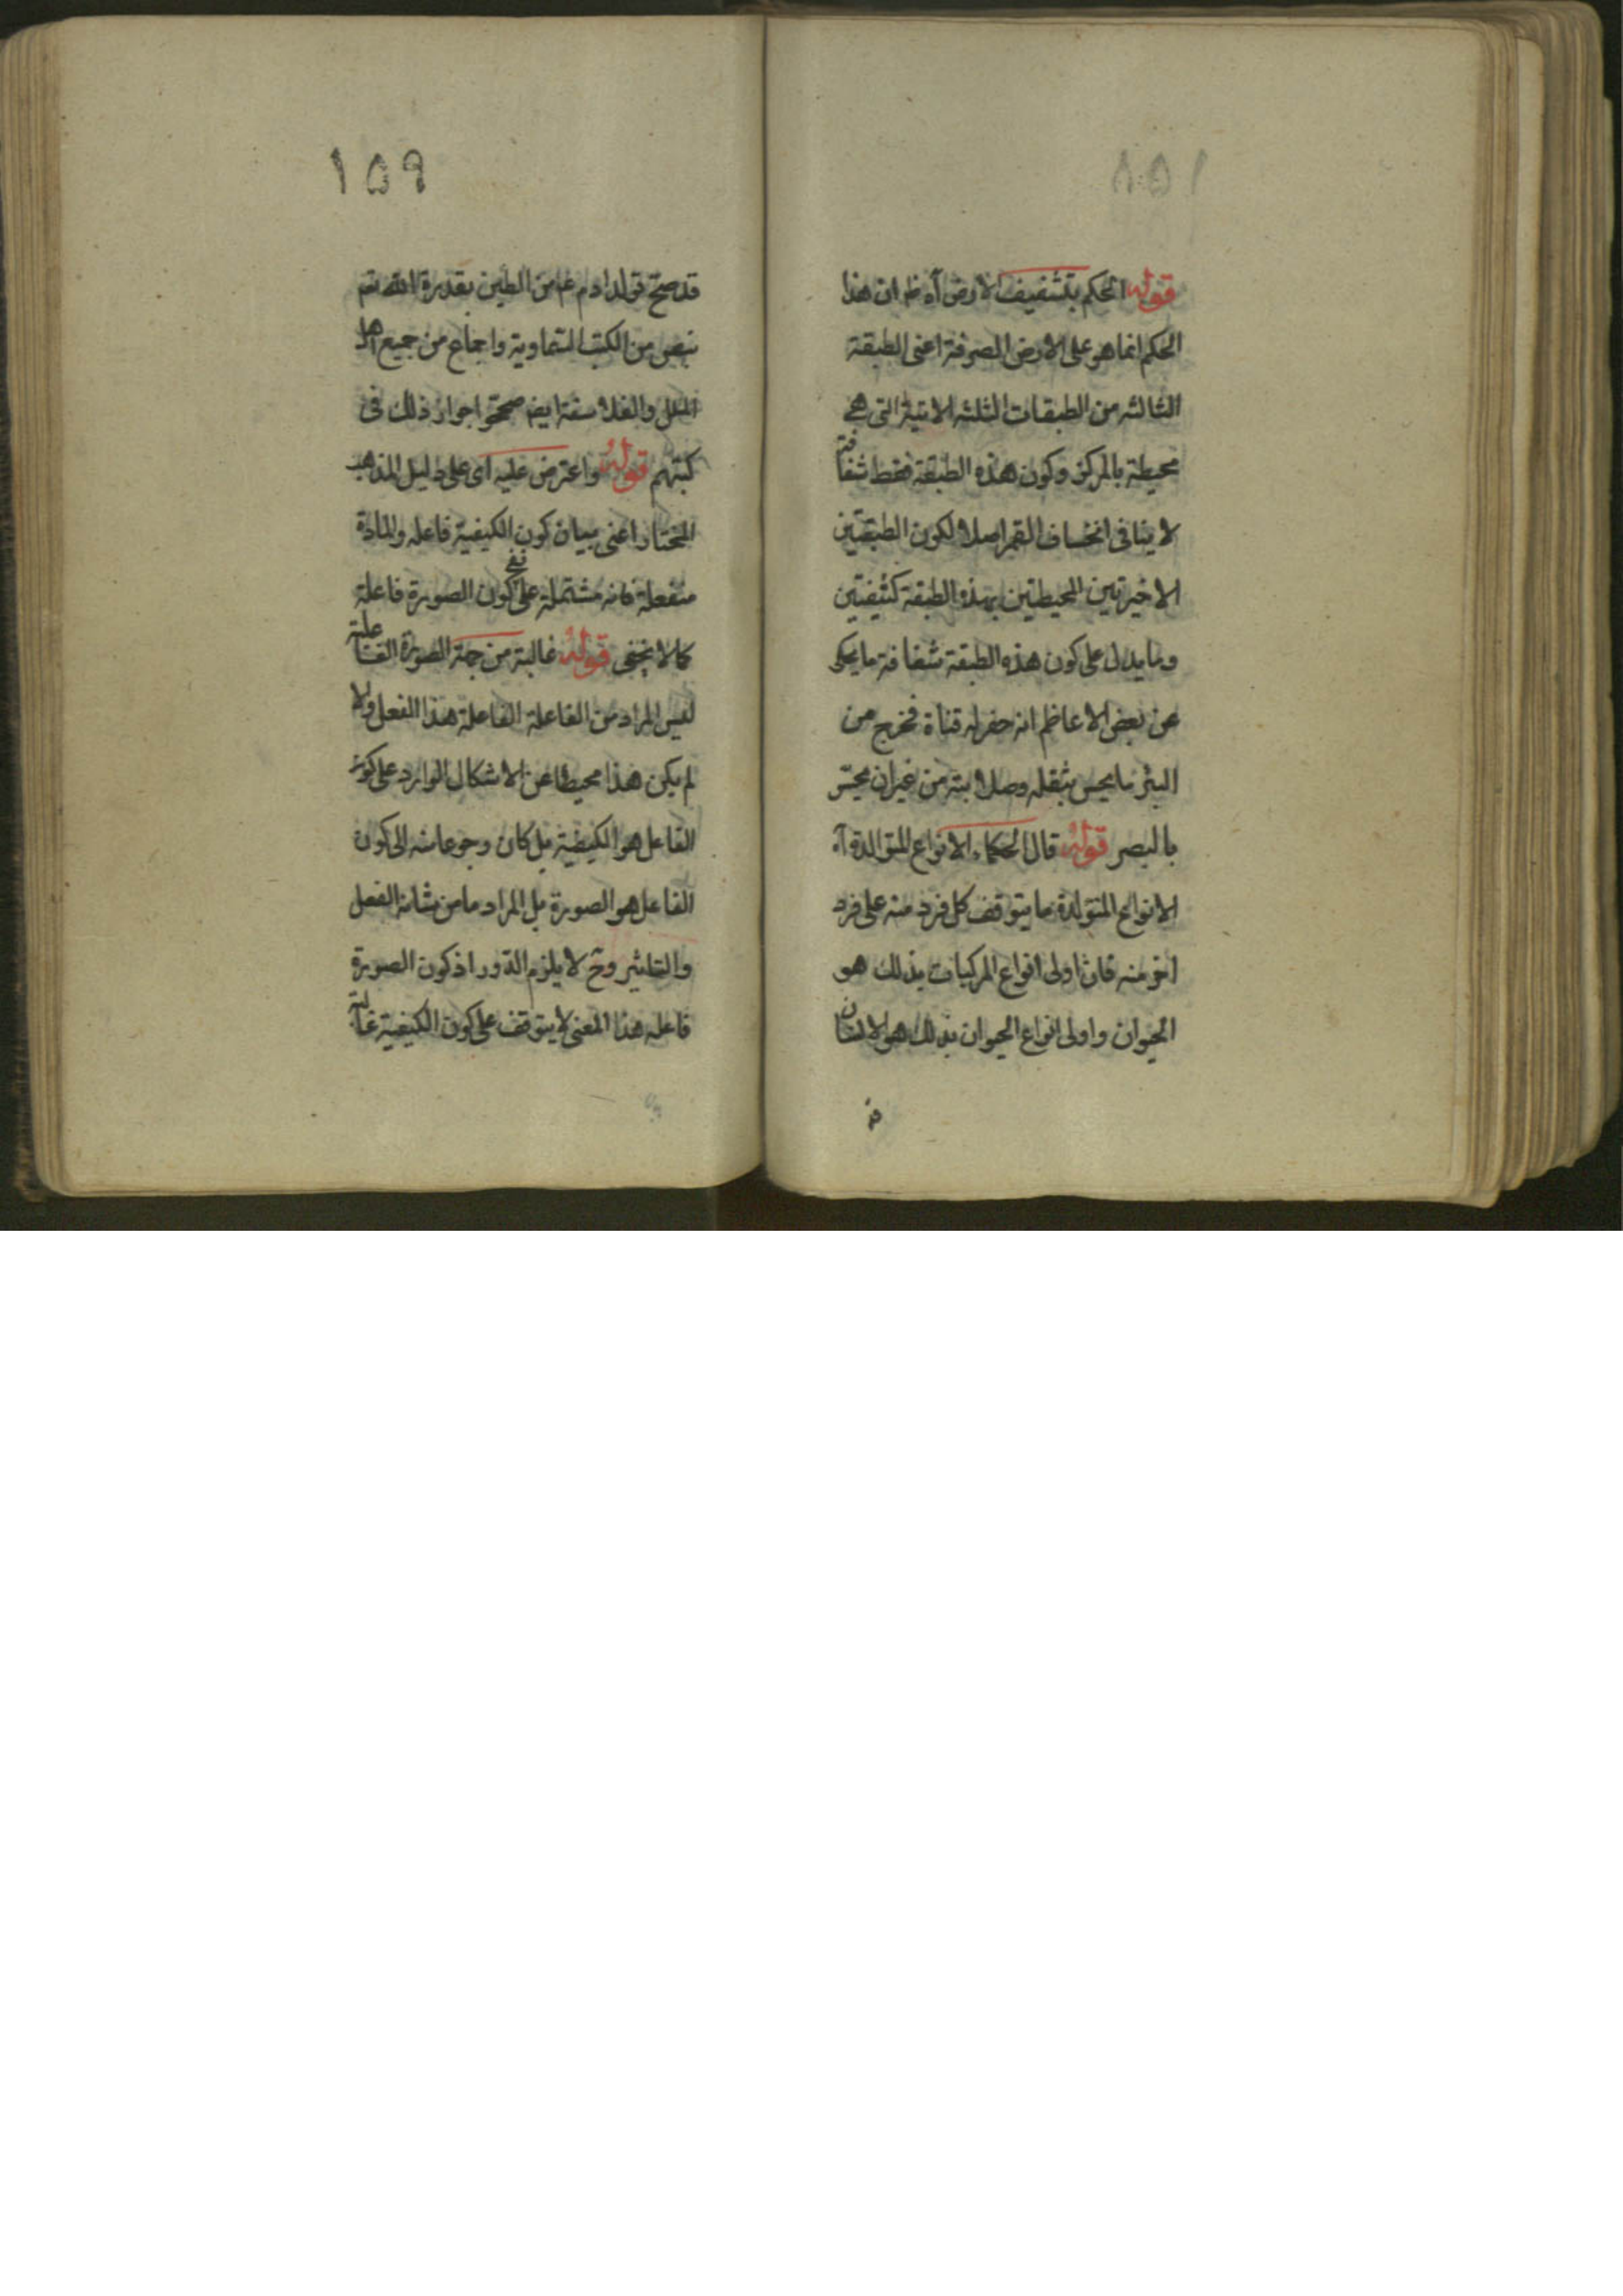 ١٥٨
قوله الحكم بتشفيف الارض آه ظ ان هذا
الحكم انما هو على الارض الصرفة اعنى الطبقة
الثالثه من الطبقات الثلثه الاتية التى هي
محيطة بالمركز وكون هذه الطبقة فقط شفافة
لا ينافى انخساف القمر اصلا لكون الطبقتين
الاخيرتين المحيطتين بهذه الطبقة كثيفتين
ومايدل على كون هذه الطبقة شفافة مايحكى
عن بعض الاعاظم انه حفر له قناة فخرج من
البئر مايحس بثقله وصلابته من غير ان يحس
بالبصر قوله قال الحكماء الانواع المتوالدة آه
الانواع المتولدة مايتوقف كل فرد منه على فرد
اخر منه فان اولى انواع المركبات بذلك هو
الحيوان واولى انواع الحيوان بذلك هو الانسان
١٥٩
قد صح تولد ادم عم من الطين بقدرة الله تع
بنص من الكتب السماوية واجماع من جميع اهل
الملل والفلاسفة ايض صححوا جواز ذلك فى
كتبهم قوله واعترض عليه اى على دليل المذهب
المختار اعنى بيان كون الكيفية فاعله والمادة
منفعلة فانه مشتملة على نفى كون الصورة فاعلة
كما لا يخفى قوله غالبة من جهة الصورة الفاعلة
ليس المراد من الفاعلة الفاعلة هذا الفعل والا
لم يكن هذا محيطا عن الاشكال الوارد على كون
الفاعل هو الكيفية بل كان رجوعا منه الى كون
الفاعل هو الصورة بل المراد ما من شانه الفعل
والتاثير وح لا يلزم الدور اذ كون الصورة
فاعله هذا المعنى لا يتوقف على كون الكيفية غالبة